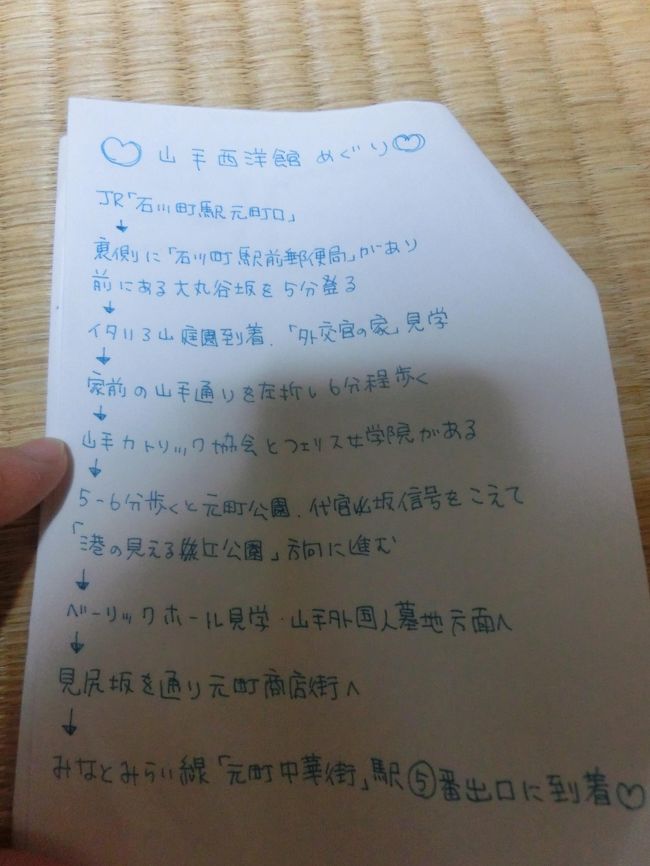 ♡ 山手西洋館めぐり ♡
JR「石川町駅元町口」
↓
裏側に「石川町駅前郵便局」があり
前にある大丸谷坂を5分登る
↓
イタリア山庭園到着.「外交官の家」見学
↓
家前の山手通りを左折し6分程歩く
↓
山手カトリック協会とフェリス女学院がある
↓
5-6分歩くと元町公園.代官坂信号をこえて
「港の見える丘公園」方向に進む
↓
ベーリックホール見学・山手外国人墓地方面へ
↓
見尻坂を通り元町商店街へ
↓
みなとみらい線「元町中華街」駅⑤番出口に到着♡